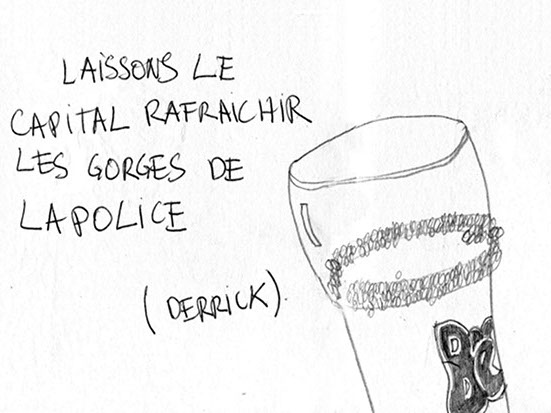 LAISSONS LE
CAPITAL RAFRAICHIR
LES GORGES DE
LA POLICE
(DERRICK).